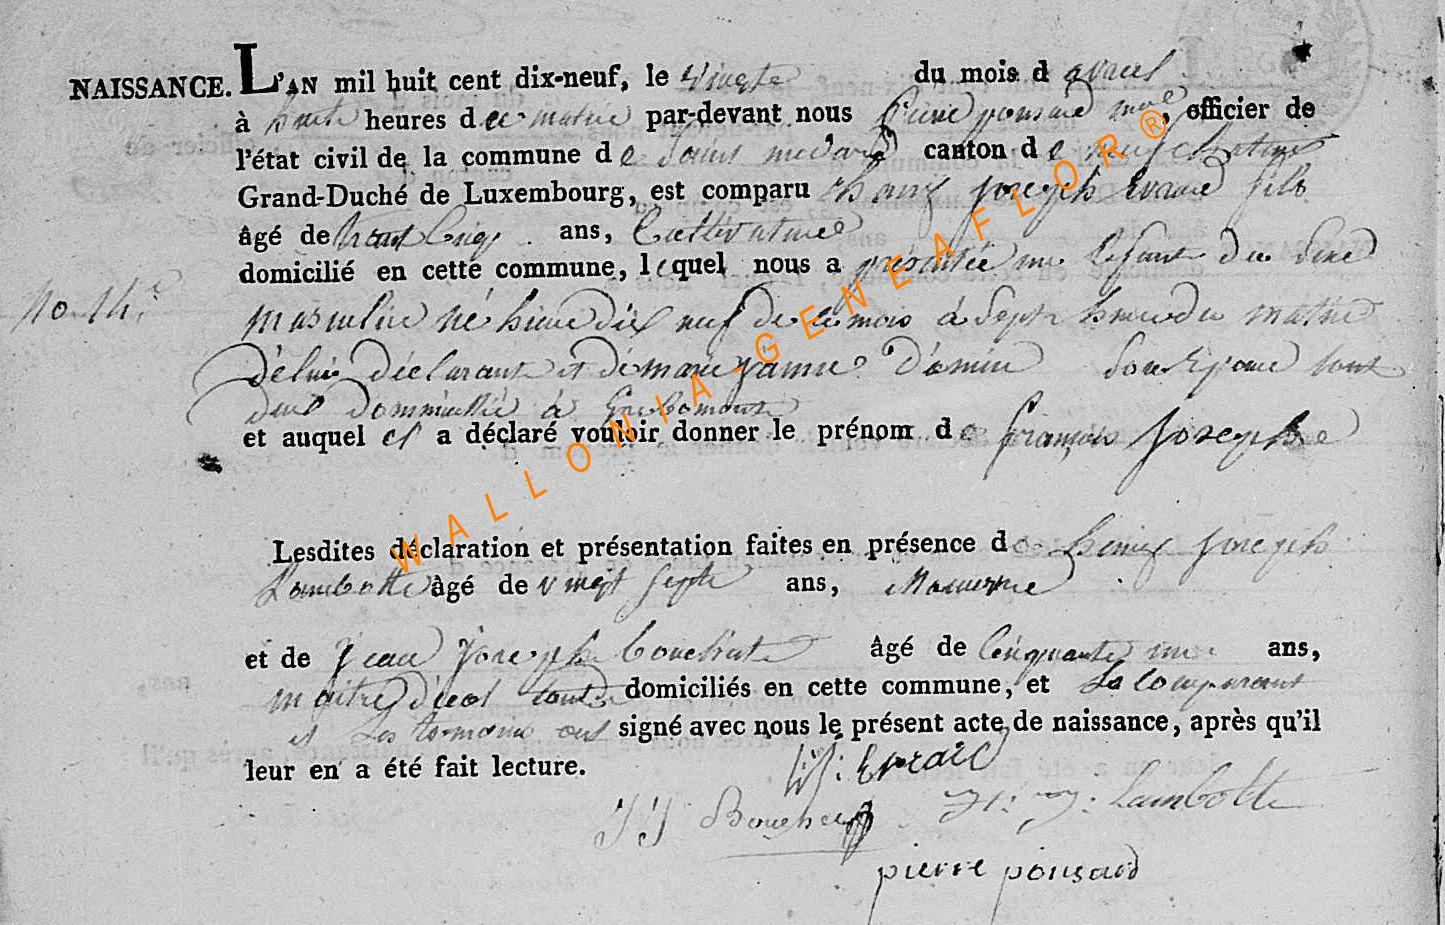 NAISSANCE. L'AN mil huit cent dix-neuf, le vingte du mois d avril
à huite heures d u matin par-devant nous pierre ponsard officier de
l'état civil de la commune d e Saint medard canton d e neufchateau
Grand-Duché de Luxembourg, est comparu joseph Evrard fils
âgé de ans, Cultivateur
domicilié en cette commune, lequel nous a présentée un Enfant du Sexe
No. 14.
masculin né hier dix neuf de ce mois à Septe heure du matin
De lui déclarant et de marie janne Domin Son Epouse tout
deux Dommicilié à Grabomont
et auquel il a déclaré vouloir donner le prénom d e françois Josephe
Lesdites déclaration et présentation faites en présence d e henry Joseph
Lambotte âgé de vingt septe ans,
et de jean joseph âgé de Cinquante une ans,
maitre d'ecol touts domiciliés en cette commune, et Le Comparant
et Les temoins ont signé avec nous le présent acte de naissance, après qu'il
leur en a été fait lecture.
Evrard
J J H: J: Lambotte
pierre ponsard
WALLONIA-GENEAFLOR®